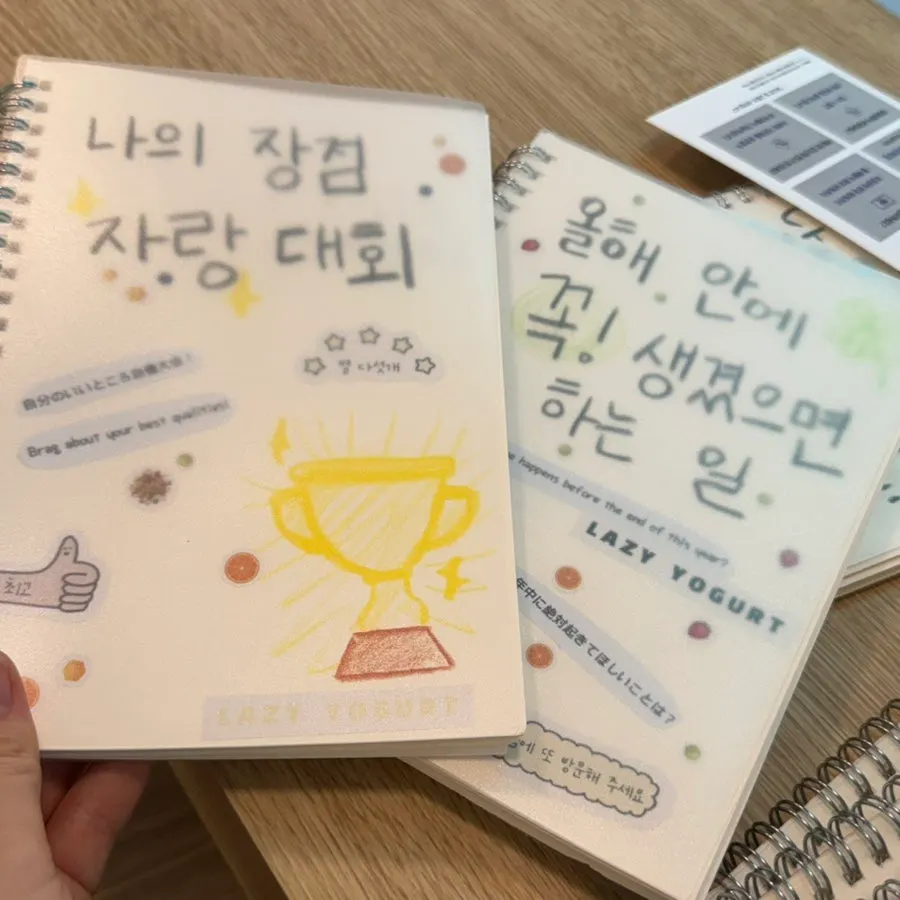 나의 장점
자랑 대회
별 다섯개
自分のいいところ自慢大会!
Brag about your best qualities!
최고
LAZY YOGURT
올해 안에
꼭! 생겼으면
하는 일
happens before the end of this year?
LAZY YOGURT
年中に絶対起きてほしいことは?
에 또 방문해 주세요